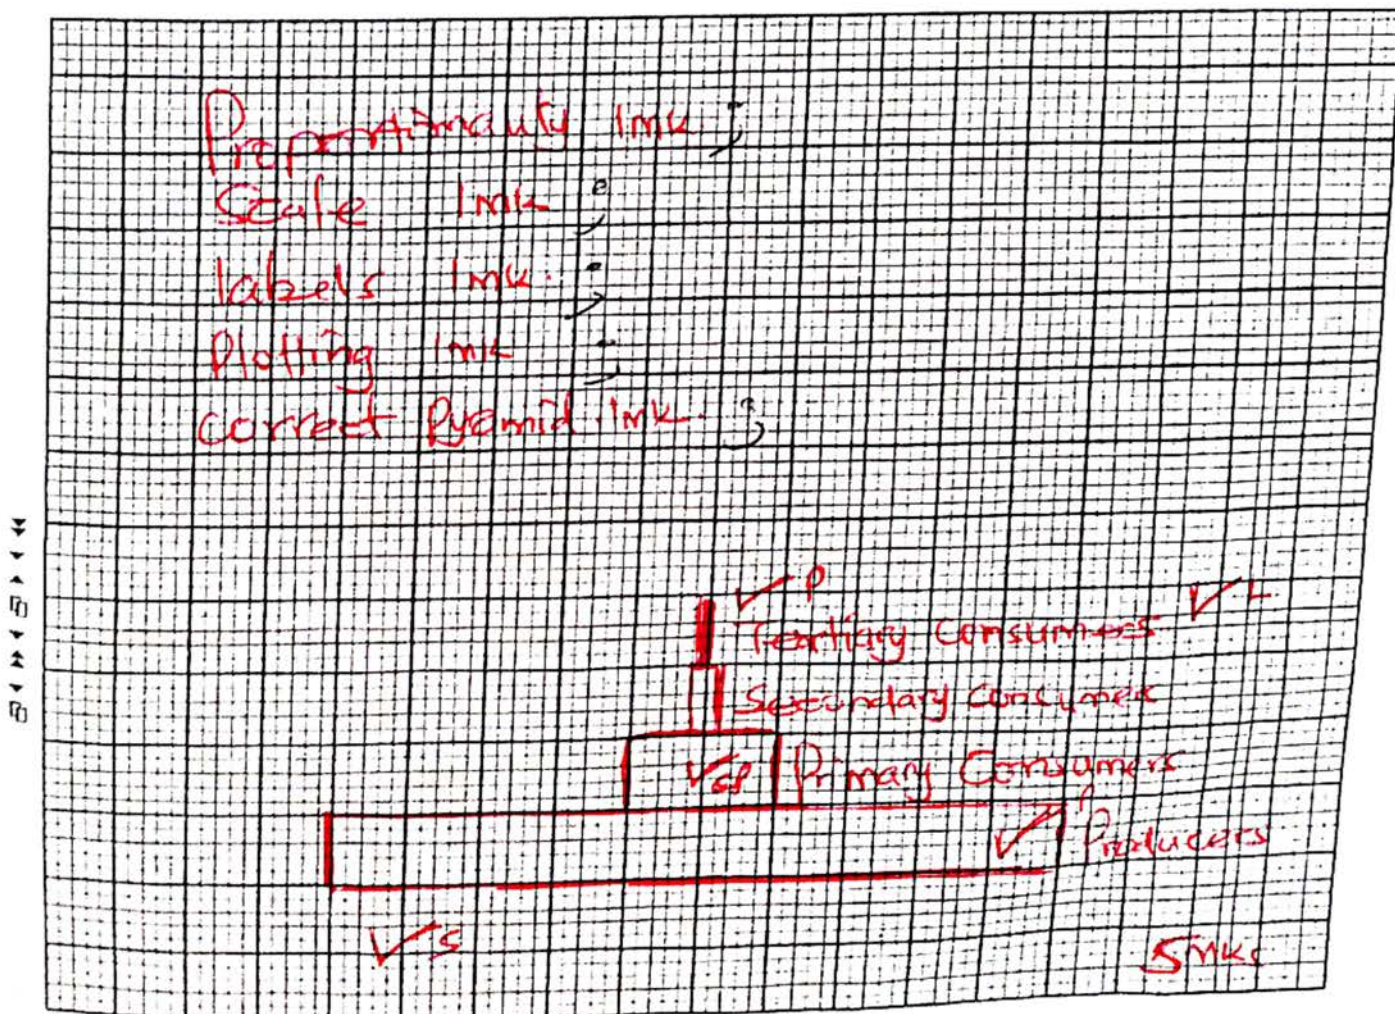 Proportionality 1mk ;
Scale 1mk ;
labels 1mk. ;
Plotting 1mk ;
correct Pyramid. 1mk. ;
✓ P
Teartiary Consumers ✓ L
Secondary Consumer
✓ CP Primary Consumers
✓ P
Producers
✓ S
5mks